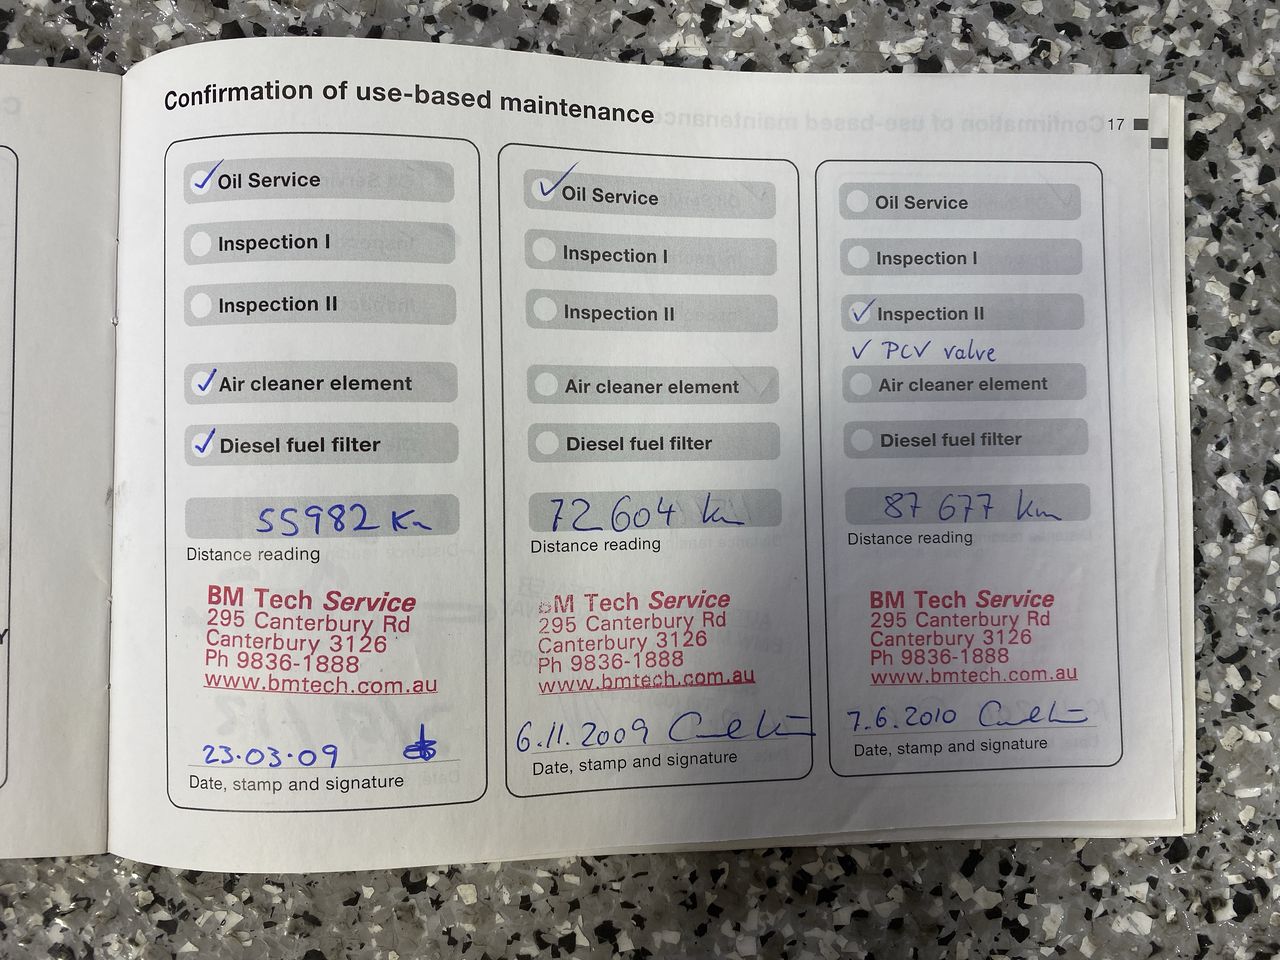 Confirmation of use-based maintenance
17
✓ Oil Service
Inspection I
Inspection II
✓ Air cleaner element
✓ Diesel fuel filter
55982 Km
Distance reading
BM Tech Service
295 Canterbury Rd
Canterbury 3126
Ph 9836-1888
www.bmtech.com.au
23.03.09
Date, stamp and signature
✓ Oil Service
Inspection I
Inspection II
Air cleaner element
Diesel fuel filter
72 604 km
Distance reading
BM Tech Service
295 Canterbury Rd
Canterbury 3126
Ph 9836-1888
www.bmtech.com.au
6.11.2009
Date, stamp and signature
Oil Service
Inspection I
✓ Inspection II
✓ PCV valve
Air cleaner element
Diesel fuel filter
87 677 km
Distance reading
BM Tech Service
295 Canterbury Rd
Canterbury 3126
Ph 9836-1888
www.bmtech.com.au
7.6.2010
Date, stamp and signature